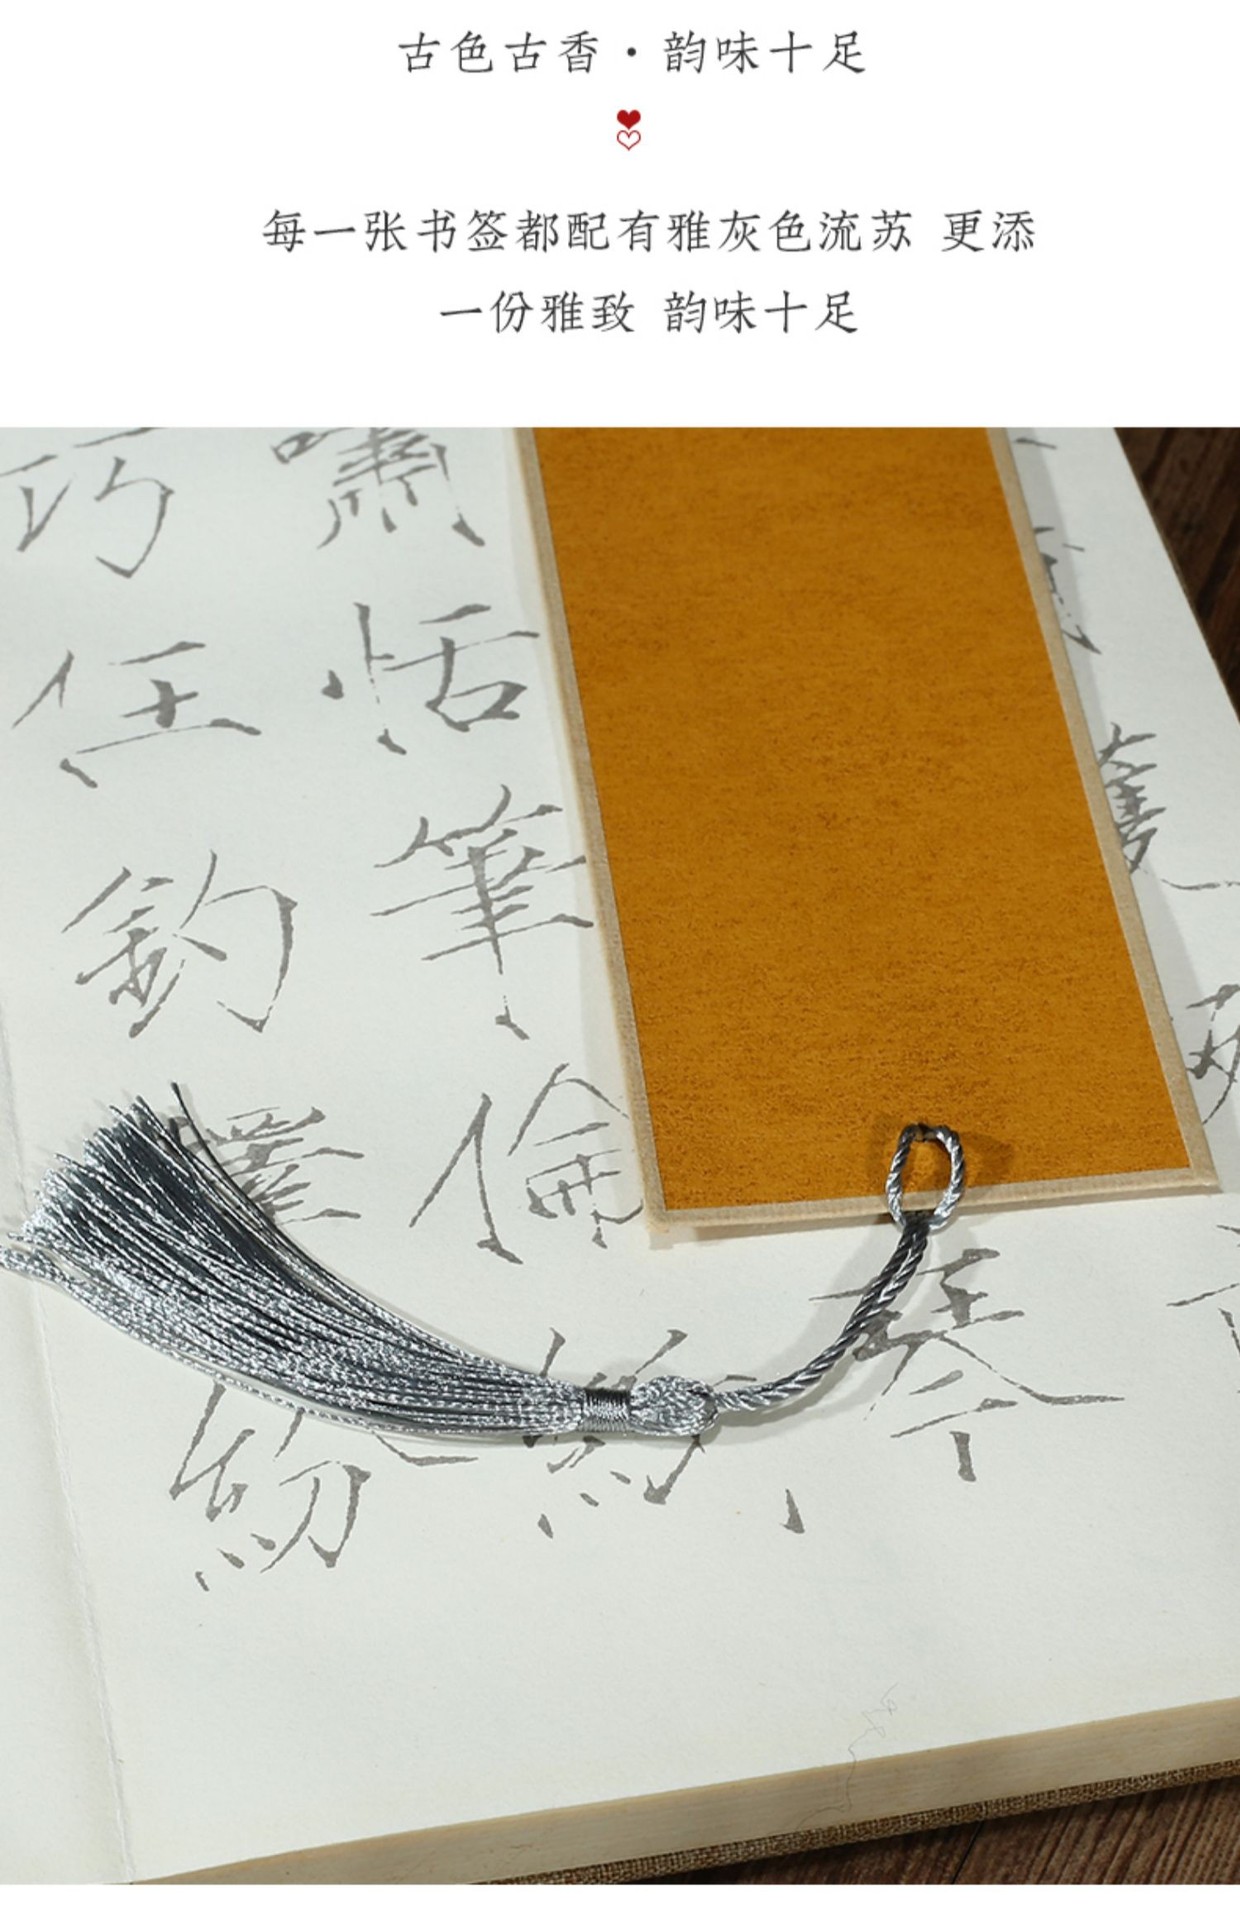 古色古香·韵味十足
每一张书签都配有雅灰色流苏 更添
一份雅致 韵味十足
嘯
恬
筆
倫
紙
巧
任
釣
釋
紛
琴